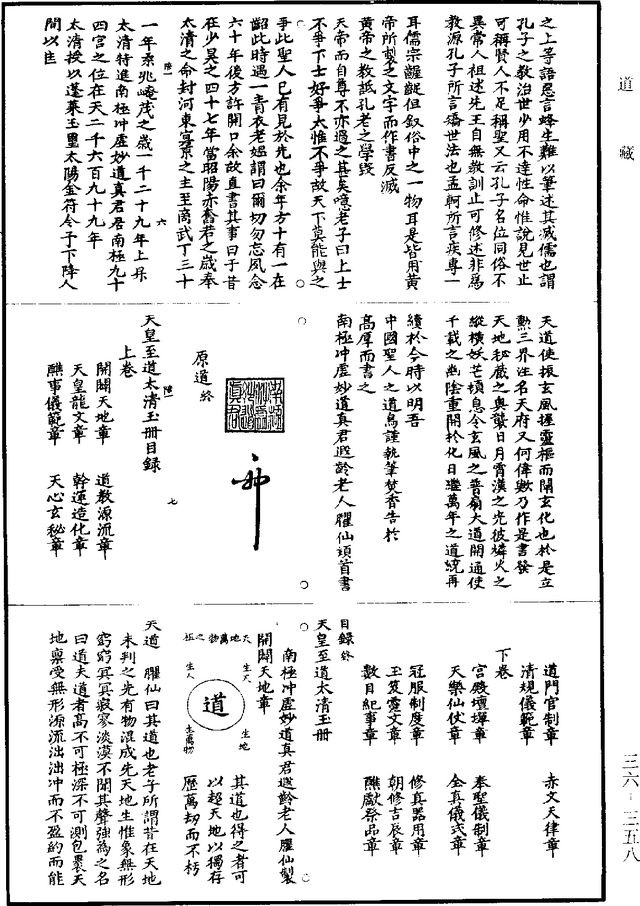 道藏
之上等語惡言蜂生難以筆述其滅儒也謂
孔子之教治世少用不達性命惟說見世止
可稱賢人不足稱聖又云孔子名位同俗不
異常人祖述先王自無教訓止可修述非為
教源孔子所言痛世法也孟軻所言疾專一
耳儒宗齷齪但叙俗中之一物耳是皆用黃
帝所製之文字而作書反滅
黃帝之教詆孔老之學毀
天帝而自尊不亦過之甚矣噫老子曰上士
不爭下士好爭夫惟不爭故天下莫能與之
爭此聖人已有見於先也余年方十有一在
齠此時遇一青衣老媼謂曰爾切勿忘夙念
六十年後方許開口余故直書其事曰于昔
在少昊之四十七年當昭陽赤奮若之歲奉
太清之命封河東寘京之主至商武丁三十
一年柔兆閹茂之歲一千二十九年上昇
太清特進南極冲虛妙道真君居南極九十
四宮之位在天二千六百九十九年
太清授以蓬萊玉璽太陽金符令予下降人
間以匡
六
天道使振玄風握靈樞而闡玄化也於是立
勳三界注名天府又何偉歟乃作是書發
天地祕藏之奧襲日月霄漢之光彼燐火之
縱橫妖芒頓息令玄風之普扇大道開通使
千載之幽陰重開於化日繼萬年之道統再
續於今時以明吾
中國聖人之道焉謹執筆焚香告於
高厚而書之
南極冲虛妙道真君遐齡老人臞仙頓首書
原道終
天皇至道太清玉冊目録
七
上卷
開闢天地章 道教源流章
天皇龍文章 幹運造化章
醮事儀範章 天心玄秘章
道門官制章 赤文天律章
清規儀範章
下卷
宮殿壇墠章 奉聖儀制章
天樂仙仗章 全真儀式章
冠服制度章 修真器用章
玉笈靈文章 朝修吉辰章
數目紀事章 醮獻祭品章
目録終
天皇至道太清玉冊
南極冲虛妙道真君遐齡老人臞仙製
開闢天地章
天地萬物之祖
生天
生地
道
生人
生萬物
其道也得之者可
以超天地以獨存
歷萬劫而不朽
天道 臞仙曰其道也老子所謂昔在天地
未判之先有物混成先天地生惟象無形
窈窈冥冥寂寥淡漠不聞其聲強為之名
曰道夫道者高不可極深不可測包裹天
地稟受無形源流泏泏冲而不盈的而能
三六-三五八